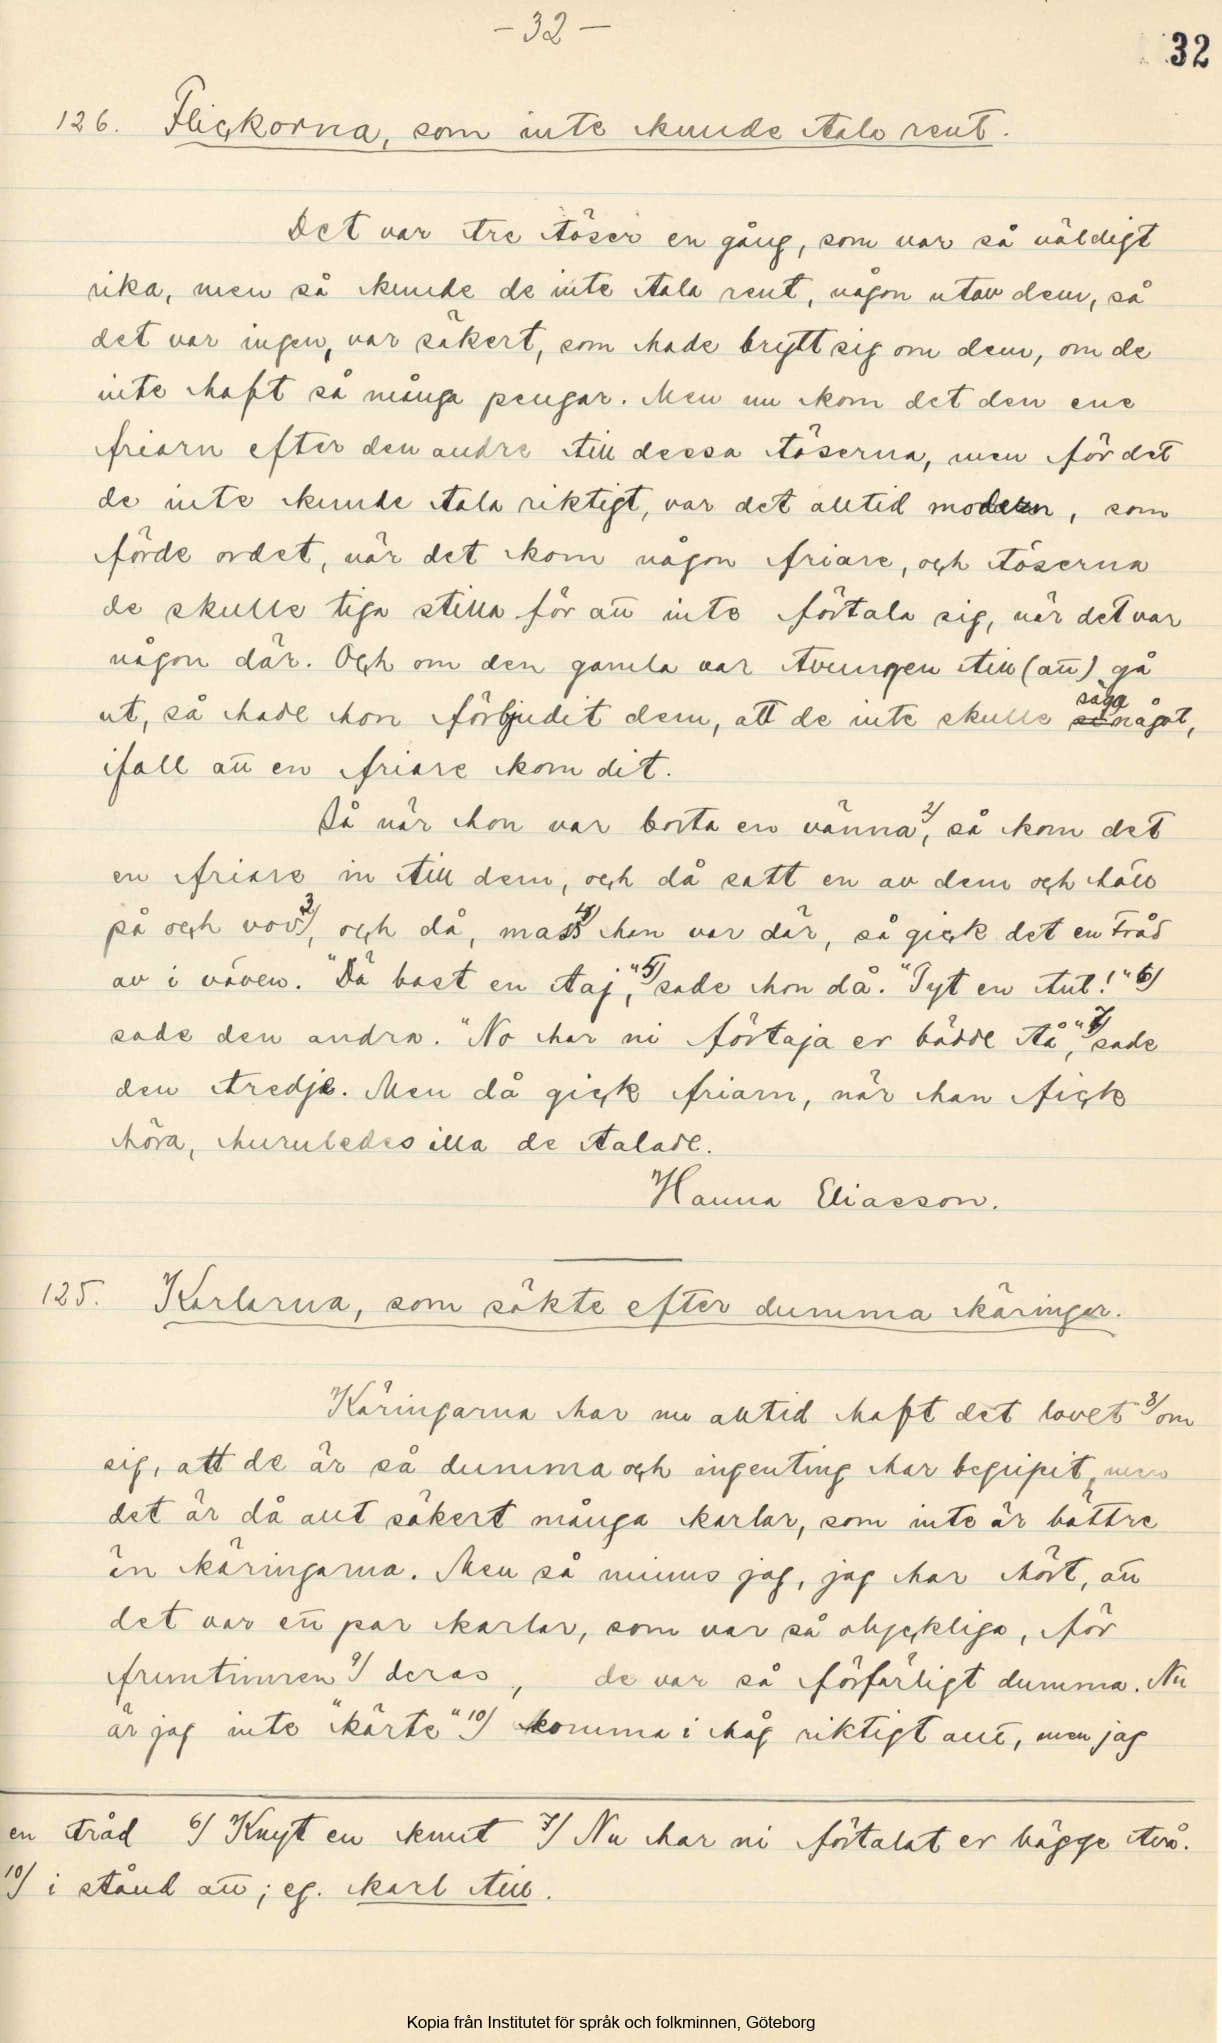 - 32 -
32
126. Flickorna, som inte kunde tala rent.
Det var tre töser en gång, som var så väldigt
rika, men så kunde de inte tala rent, någon utav dem, så
det var ingen, var säkert, som hade brytt sig om dem, om de
inte haft så många pengar. Men nu kom det den ene
friarn efter den andre till dessa töserna, men för det
de inte kunde tala riktigt, var det alltid modern, som
förde ordet, när det kom någon friare, och töserna
de skulle tiga stilla för att inte förtala sig, när det var
någon där. Och om den gamla var tvungen till (att) gå
ut, så hade hon förbjudit dem, att de inte skulle säga något,
ifall att en friare kom dit.
Så när hon var borta en vänna 2/, så kom det
en friare in till dem, och då satt en av dem och höll
på och vov 3/, och då, mass 4/ han var där, så gick det en tråd
av i väven. "Dä bast en taj," 5/ sade hon då. "Tyt en tut!" 6/
sade den andra. "No har ni förtaja er bådde tå," 7/ sade
den tredje. Men då gick friarn, när han fick
höra, huruledes illa de talade.
Hanna Eliasson.
125. Karlarna, som sökte efter dumma käringar.
Käringarna har nu alltid haft det lovet 8/ om
sig, att de är så dumma och ingenting har begripit, men
det är då allt säkert många karlar, som inte är bättre
än käringarna. Men så minns jag, jag har hört, att
det var ett par karlar, som var så olyckliga, för
fruntimren 9/ deras , de var så förfärligt dumma. Nu
är jag inte "kärte" 10/ komma i håg riktigt allt, men jag
en tråd 6/ Knyt en knut 7/ Nu har ni förtalat er bägge två.
10/ i stånd att; eg. karl till.
Kopia från Institutet för språk och folkminnen, Göteborg